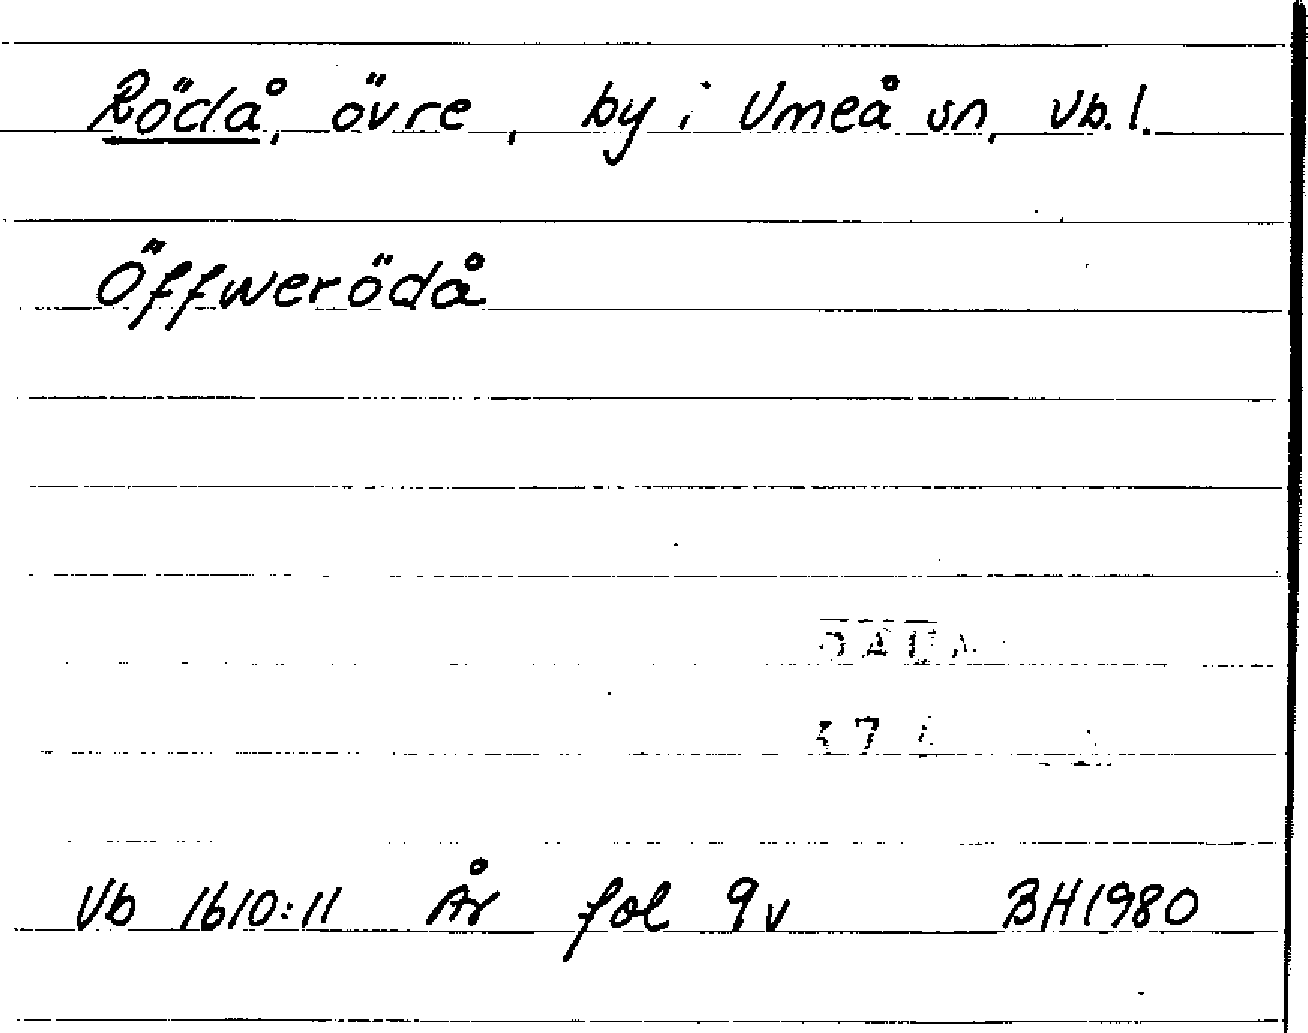 Rödå, övre, by i Umeå sn, Vb. l.
Öffwerödå
DAUM
Vb 1610:11 År fol 9v BH1980